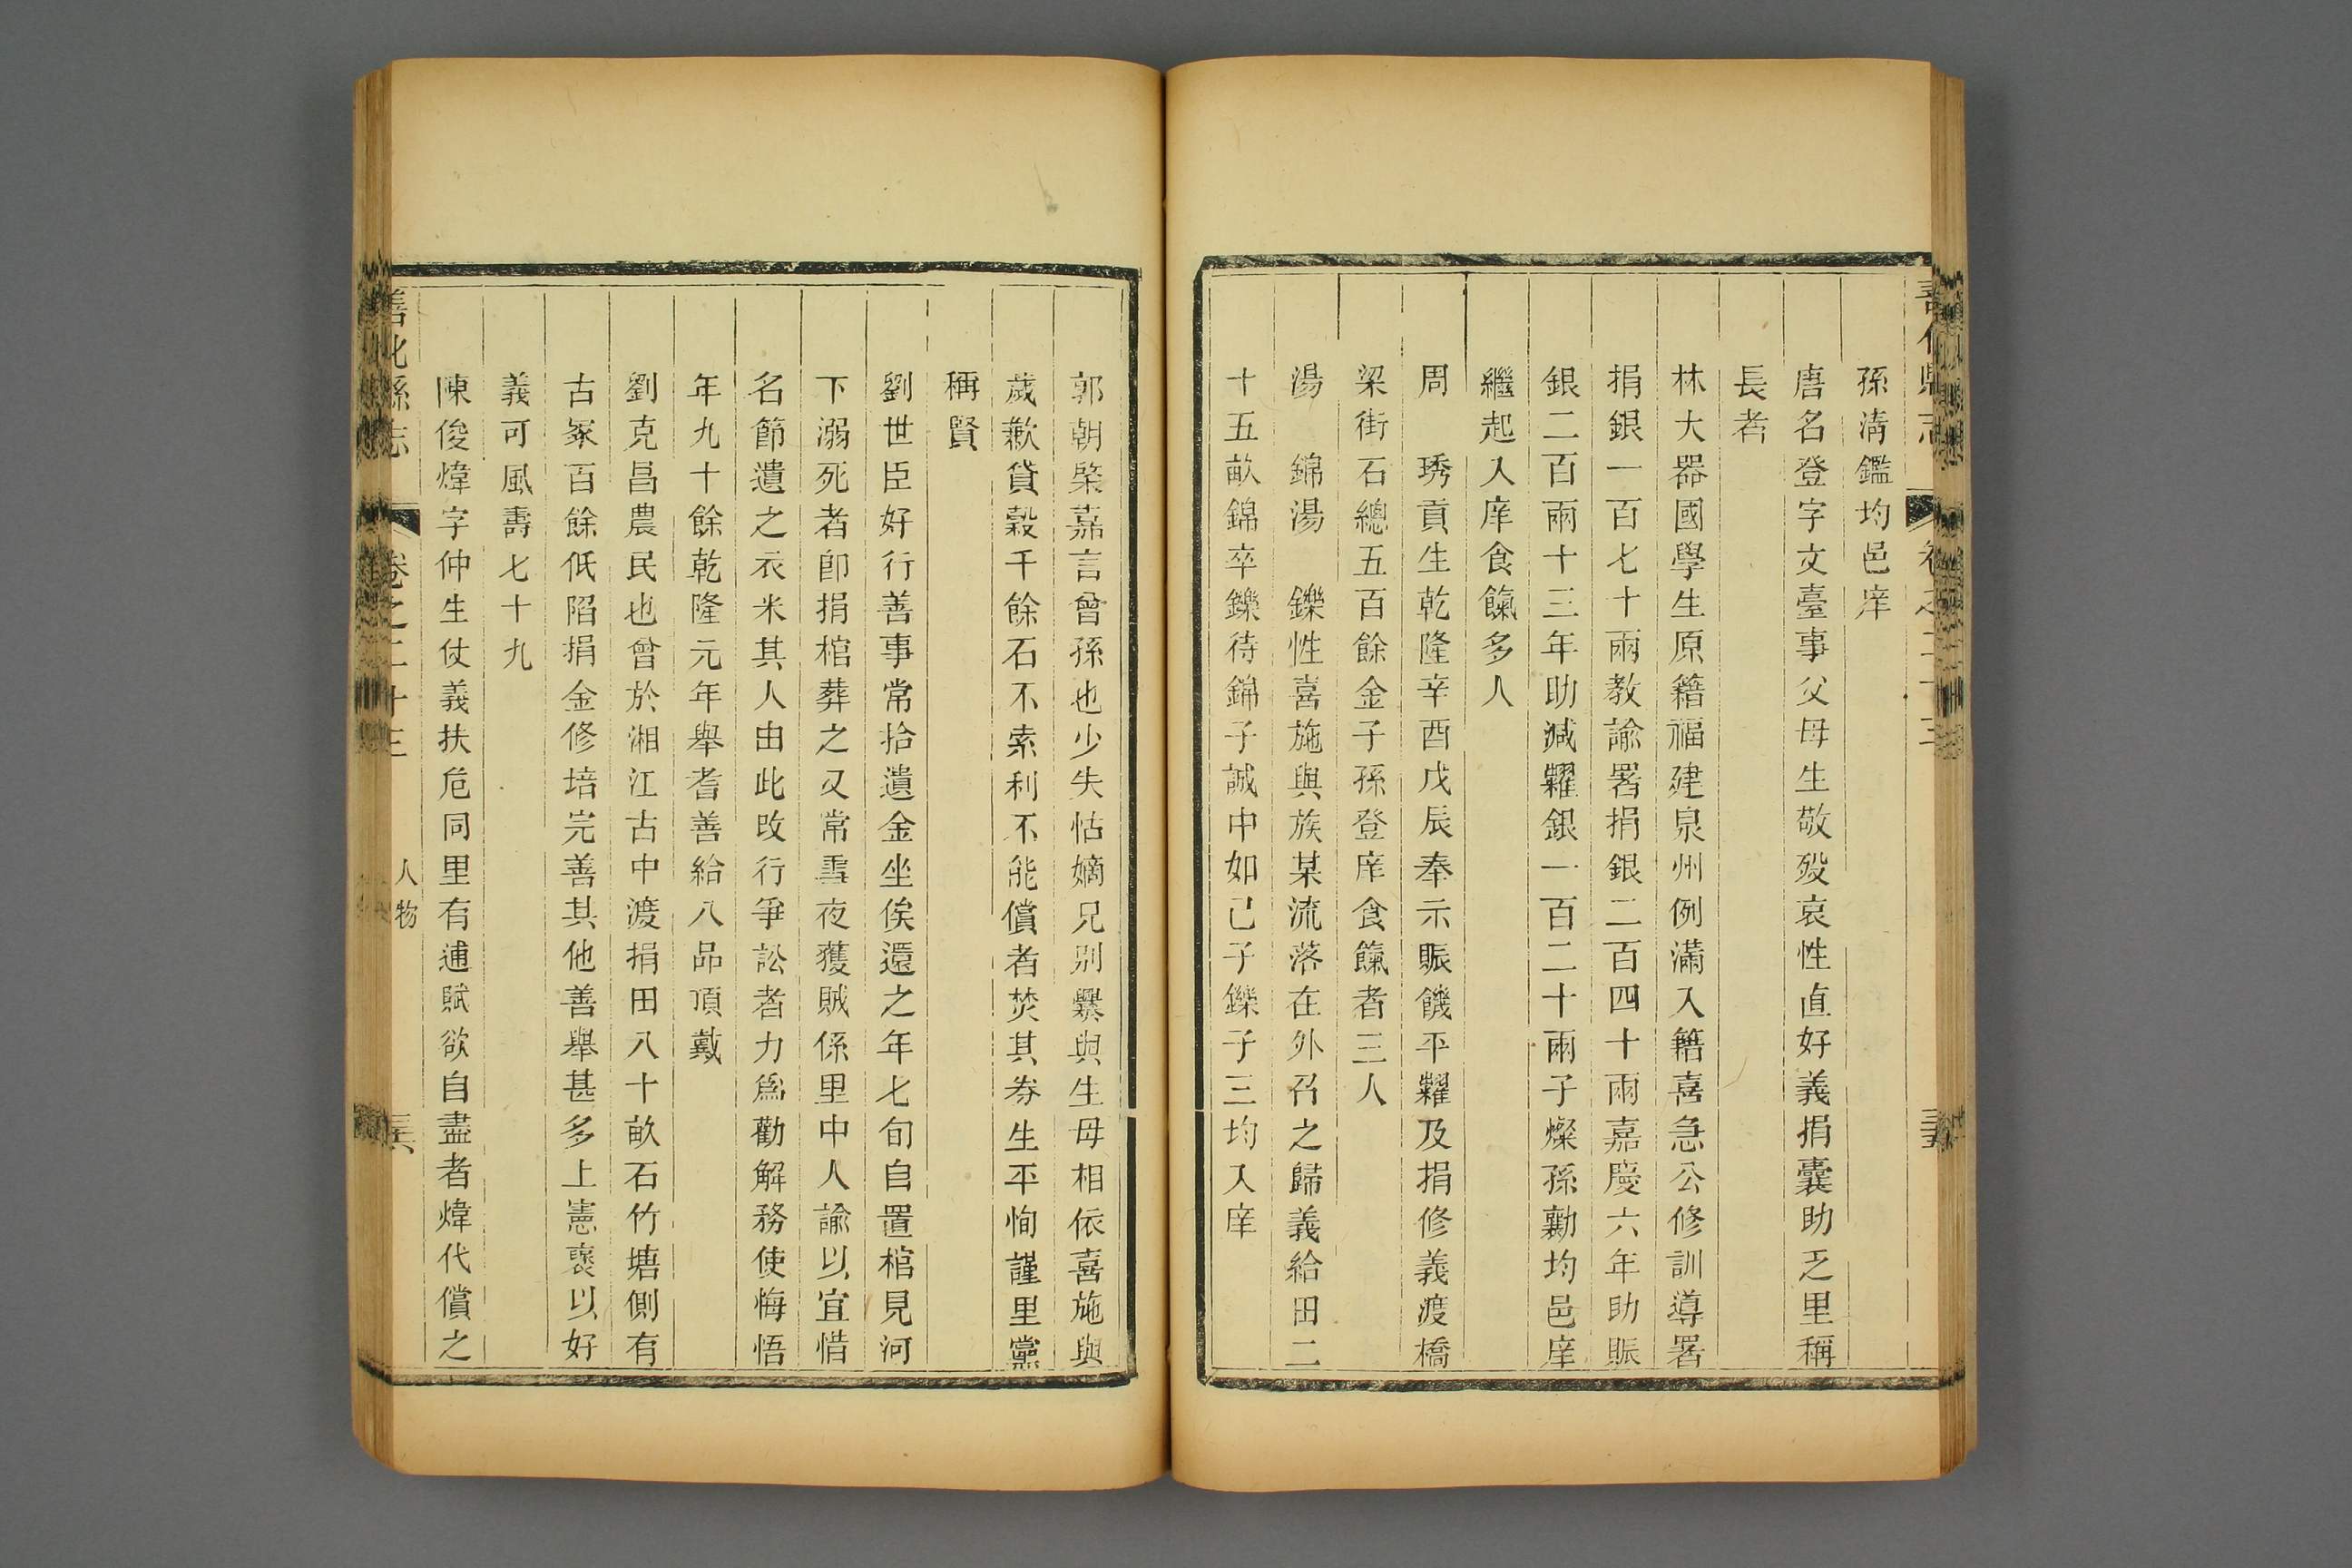 孫淸鑑均邑庠
唐名登字文臺事父母生敬歿哀性直好義捐囊助乏里稱
長者
林大器國學生原籍福建泉州例滿入籍喜急公修訓導署
捐銀一百七十兩敎諭署捐銀二百四十兩嘉慶六年助賑
銀二百兩十三年助減糶銀一百二十兩子燦孫勷均邑庠
繼起入庠食餼多人
周　琇貢生乾隆辛酉戊辰奉示賑饑平糶及捐修義渡橋
梁街石總五百餘金子孫登庠食餼者三人
湯　錦湯　鑠性喜施與族某流落在外召之歸義給田二
十五畝錦卒鑠待錦子誠中如己子鑠子三均入庠
郭朝棨嘉言曾孫也少失怙嫡兄別爨與生母相依喜施與
歲歉貸穀千餘石不索利不能償者焚其券生平恂謹里黨
稱賢
劉世臣好行善事常拾遺金坐俟還之年七旬自置棺見河
下溺死者卽捐棺葬之又常雪夜獲賊係里中人諭以宜惜
名節遺之衣米其人由此改行爭訟者力爲勸解務使悔悟
年九十餘乾隆元年舉耆善給八品頂戴
劉克昌農民也曾於湘江古中渡捐田八十畝石竹塘側有
古冢百餘低陷捐金修培完善其他善舉甚多上憲褒以好
義可風壽七十九
陳俊煒字仲生仗義扶危同里有逋賦欲自盡者煒代償之
善化縣志　卷之二十三　人物　三六